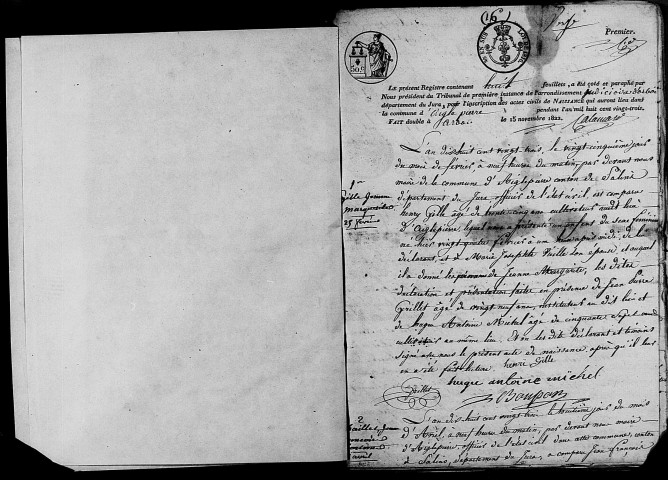 (16)
Premier.
Le présent Registre contenant huit feuillets, a été coté et paraphé par
Nous président du Tribunal de première instance de l'arrondissement judiciaire
département du Jura, pour l'inscription des actes civils de NAISSANCE qui auront lieu dans
la commune d'aiglepierre pendant l'an mil huit cent vingt-trois.
FAIT double à Arbois le 15 novembre 1822.
L'an dix huit cent vingt trois, le vingt cinquième jour
du mois de février, à neuf heures du matin, par devant nous
maire de la commune d'Aiglepierre canton de Salins
département du Jura officier de l'état civil, est comparu
1er
Gille
Marguerite
25 février
henry Gille âgé de trente cinq ans cultivateur
d'Aiglepierre, lequel nous a présenté un enfant de sexe féminin
né hier vingt quatre février à une heure après midi, de lui
déclarant, et de Marie Josephte son épouse, et auquel
il a donné les prénoms de Jeanne Marguerite, les dites
déclaration et présentation faites en présence de Jean Pierre
Grillet âgé de vingt neuf ans, instituteur au dit lieu et
de hugue Antoine Michel âgé de cinquante sept ans
cultivateur au même lieu. Et ont les dits déclarant et témoins
signé avec nous le présent acte de naissance, après qu'il leur
en a été fait lecture. henri Gille
Grillet
hugue antoine michel
2
avril
L'an dix huit cent vingt trois le huitième jour du mois
d'Avril, à neuf heures du matin, par devant nous maire
d'Aiglepierre, officier de l'état civil de cette commune, canton
de Salins, département du Jura, a comparu Jean François